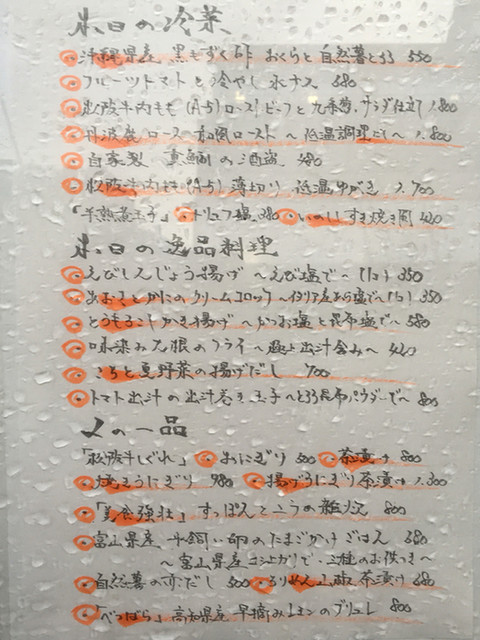 本日の冷菜
・沖縄県産 黒もずく酢 おくらと自然薯とろろ 550
・フルーツトマトと冷やし水ナス 680
・松阪牛内もも(A5)ローストビーフと九条葱、サラダ仕立て 1,800
・丹波鹿 ロースの和風ロースト 〜低温調理にて〜 1,800
・自家製 真鯛の酒盗 480
・松阪牛内もも(A5)薄切り 低温ゆがき 2,700
「半熟煮玉子」・トリュフ塩 380 ・いのししすき焼き風 420
本日の逸品料理
・えびしんじょう揚げ 〜えび塩で〜 (1コ) 350
・あおさとかにのクリームコロッケ 〜イタリア産あら塩で〜 (1コ) 350
・とうもろこしかき揚げ 〜かつお塩と昆布塩で〜 580
・味染み大根のフライ 〜極上出汁含み〜
・ころと夏野菜の揚げだし 700
・トマト出汁の出汁巻き玉子 〜とろろ昆布パウダーで〜 800
〆の一品
「松阪牛しぐれ」・おにぎり 500 ・茶漬け 800
・焼きうにぎり 980 ・揚げうにぎり茶漬け 1,300
・「美食強壮」すっぽんとふうの雑炊 800
・富山県産 平飼い卵のたまごかけごはん 680
〜富山県産コシヒカリで・三種のお供つき〜
・自然薯の赤だし 500 ・ちりめん山椒茶漬け 680
・「べっぱら」高知県産 早摘みレモンのブリュレ 800